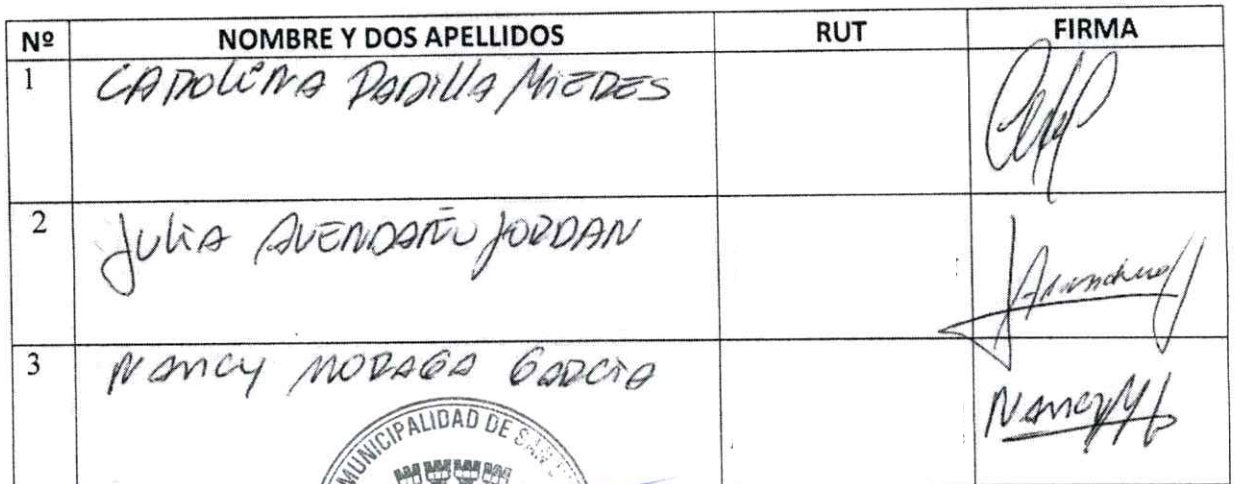 Nº NOMBRE Y DOS APELLIDOS RUT FIRMA
1 CAROLINA PADILLA MIEDES
2 JULIA AVENDAÑO JORDAN
3 NANCY MORAGA GARCIA
Nancy M
MUNICIPALIDAD DE SAN